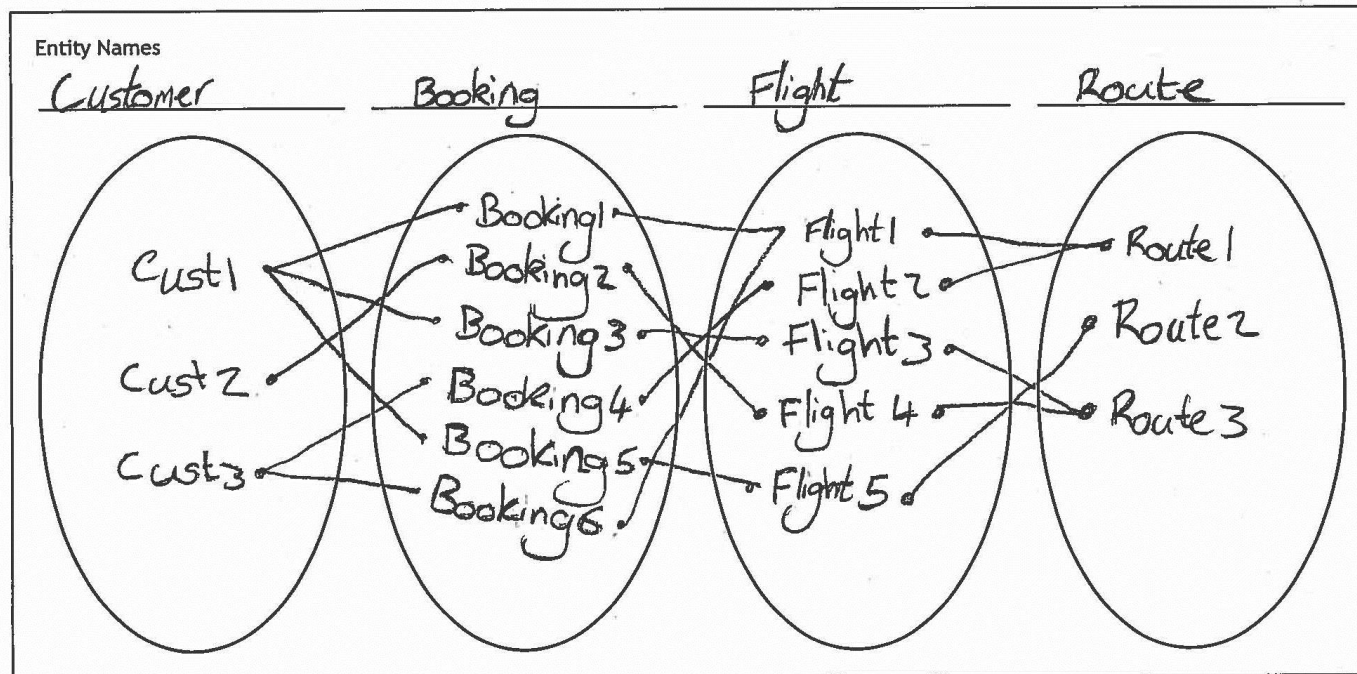 Entity Names
Customer Booking Flight Route
Cust1
Cust2
Cust3
Booking1
Booking2
Booking3
Booking4
Booking5
Booking6
Flight1
Flight2
Flight3
Flight 4
Flight5
Route1
Route2
Route3